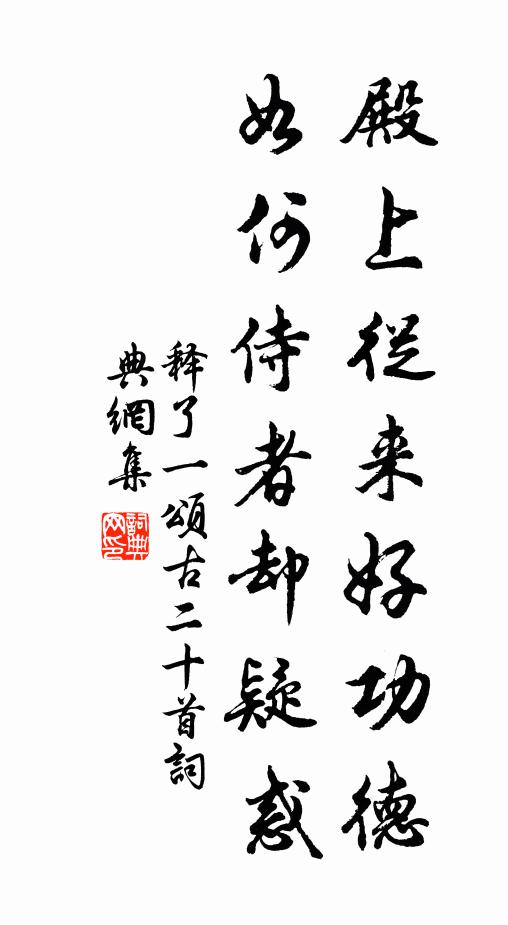 殿上從来好功德
如何侍者却疑惑
释了一頌古二十首詞
典網集
詞典
网印